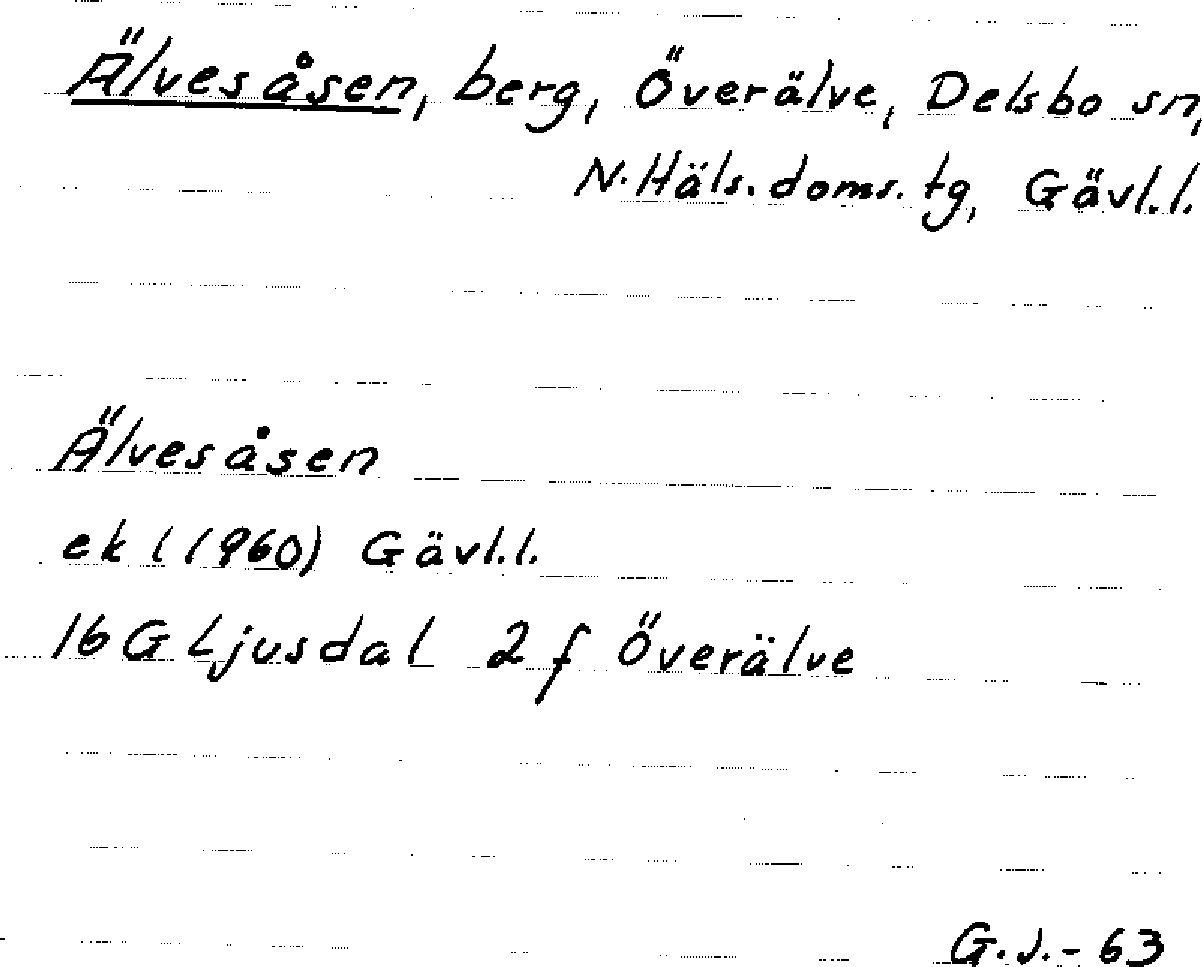 Älvesåsen, berg, Överälve, Delsbo sn,
N. Häls. doms. tg, Gävl.l.
Älvesåsen
ekl (1960) Gävl.l.
16 G Ljusdal 2 f Överälve
G.J.-63